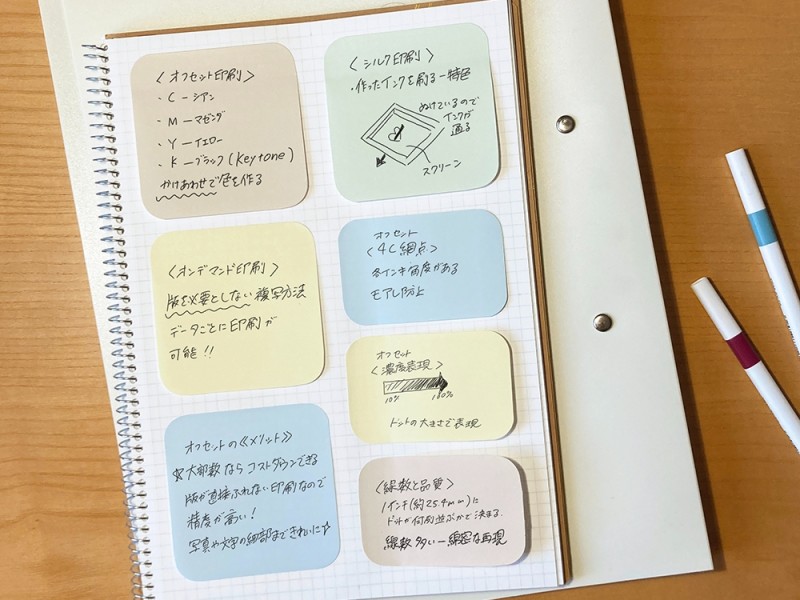 〈オフセット印刷〉
・C ― シアン
・M ― マゼンダ
・Y ― イエロー
・K ― ブラック(Key tone)
かけあわせで色を作る
〈オンデマンド印刷〉
版を必要としない複写方法
データごとに印刷が
可能!!
オフセットの《メリット》
☆大部数ならコストダウンできる
版が直接ふれない印刷なので
精度が高い!
写真や文字の細部まできれいに☆
〈シルク印刷〉
・作ったインクを刷る―特色
ぬけているので
インクが
通る
スクリーン
オフセット
〈4C網点〉
各インキ角度がある
モアレ防止
オフセット
〈濃度表現〉
10% 100%
ドットの大きさで表現
〈線数と品質〉
1インチ(約254mm)に
ドットが何列並ぶかで決まる。
線数多い―綿密な再現